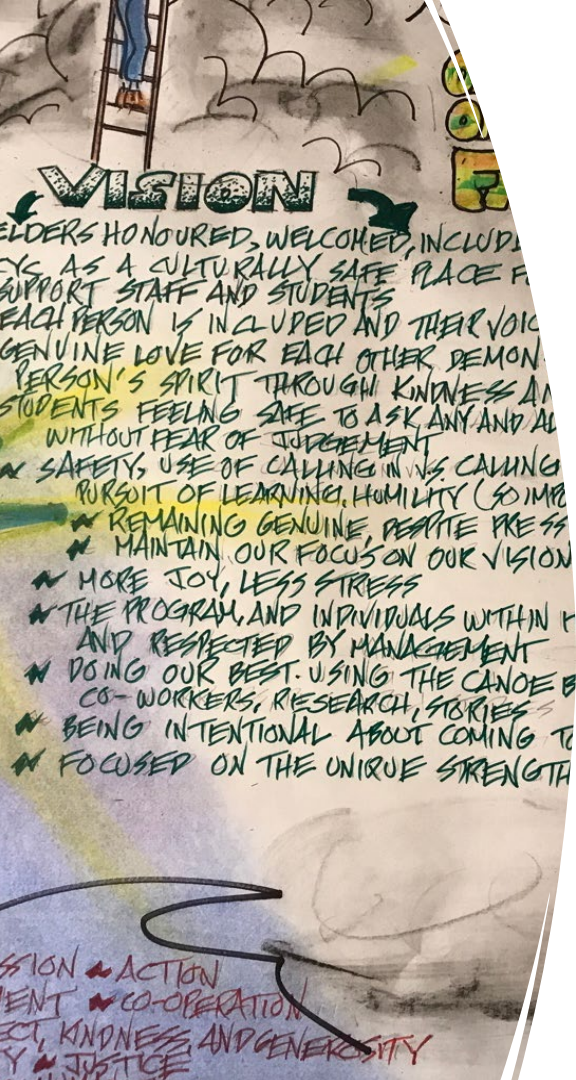 VISION
ELDERS HONOURED, WELCOMED, INCLUD
CYC AS A CULTURALLY SAFE PLACE F
SUPPORT STAFF AND STUDENTS
EACH PERSON IS INCLUDED AND THEIR VOIC
GENUINE LOVE FOR EACH OTHER DEMON
PERSON'S SPIRIT THROUGH KINDNESS AN
STUDENTS FEELING SAFE TO ASK ANY AND AL
WITHOUT FEAR OF JUDGEMENT
SAFETY, USE OF CALLING IN VS. CALLING
PURSUIT OF LEARNING. HUMILITY (SO IMPO
REMAINING GENUINE, DESPITE PRESS
MAINTAIN OUR FOCUS ON OUR VISION
MORE JOY, LESS STRESS
THE PROGRAM, AND INDIVIDUALS WITHIN I
AND RESPECTED BY MANAGEMENT
DOING OUR BEST. USING THE CANOE B
CO-WORKERS, RESEARCH, STORIES
BEING INTENTIONAL ABOUT COMING TO
FOCUSED ON THE UNIQUE STRENGTH
SSION ACTION
ENT CO-OPERATION
ECT, KINDNESS, AND GENEROSITY
Y JUSTICE